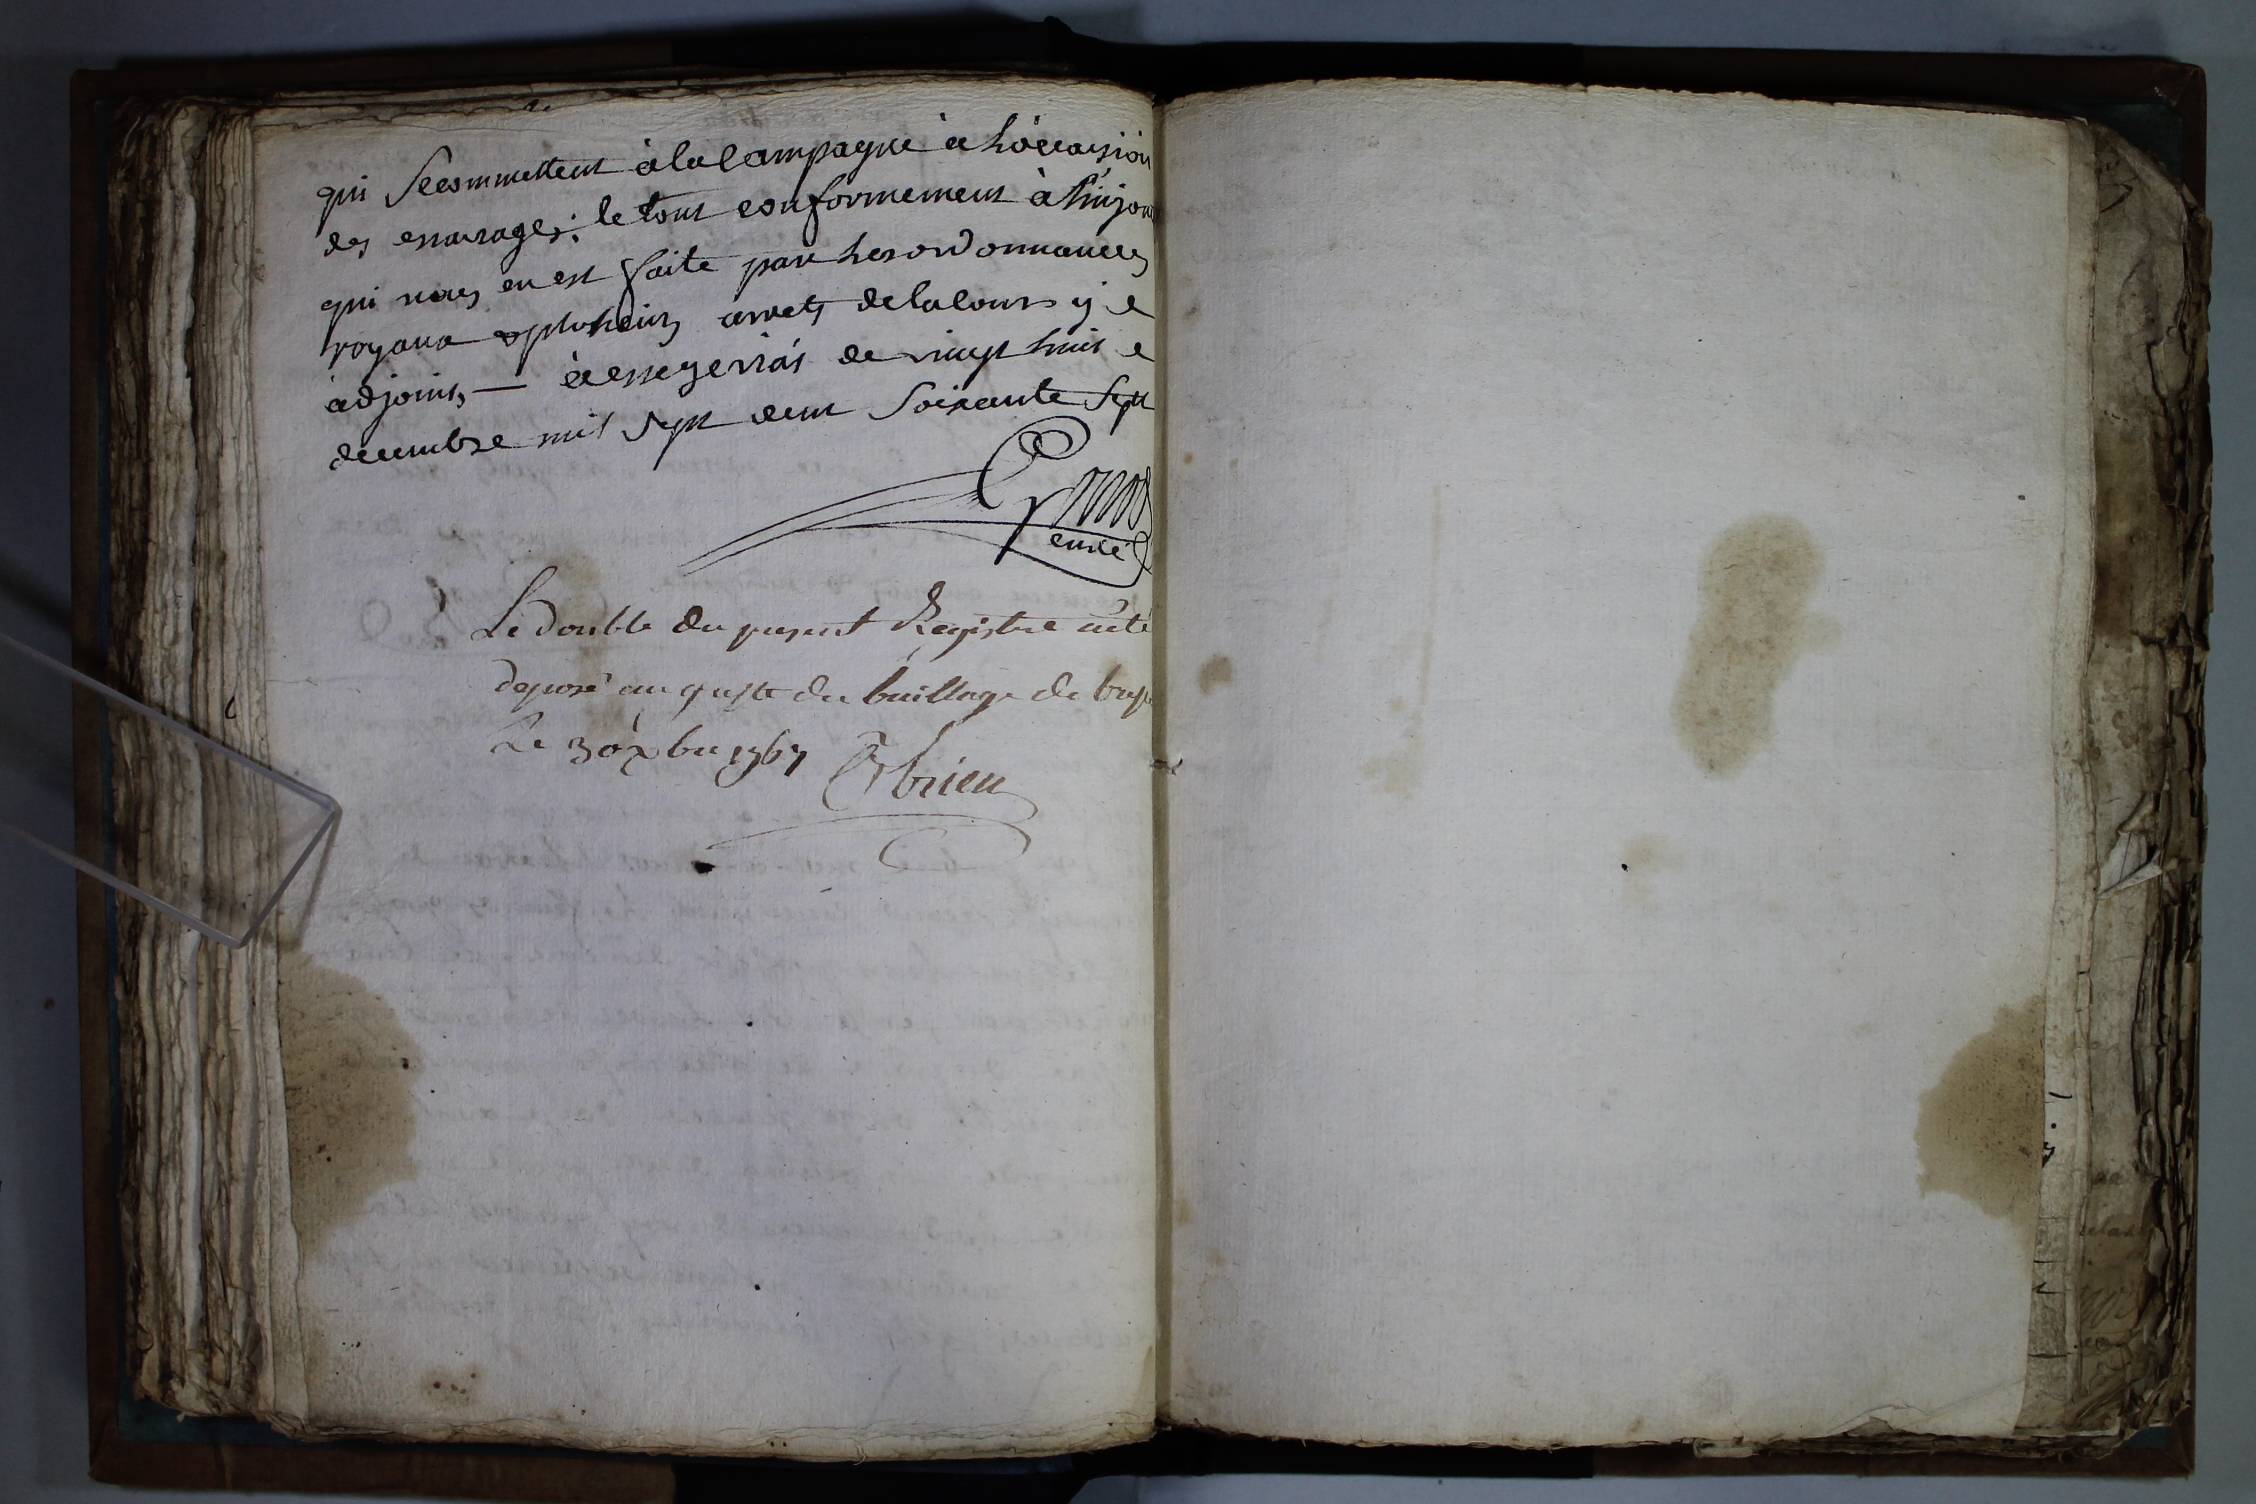 qui se commettent à la Campagne à l'occasion
des ; le tout conformement à l'injon
qui nous en est faite par les ordonnances
royaux & plusieurs arrets de la Cour y
adjoints, — de vingt huit
decembre mil sept cent Soixante Sept
curé
Le Double du present Registre a été
deposé au greffe du bailliage de
Le 30 xbre 1767 brien